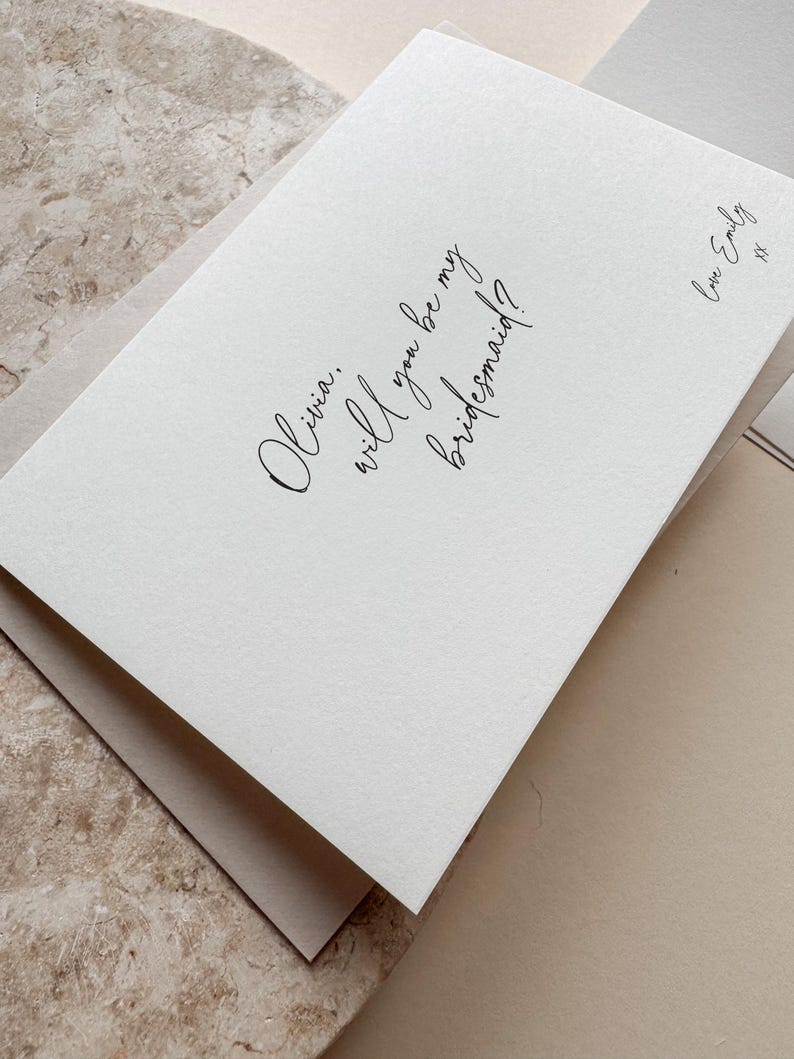 Olivia,
will you be my
bridesmaid?
love Emily
xx